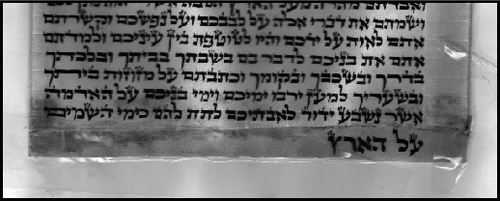 ואבדתם מהרה מעל
ושמתם את דברי אלה על לבבכם ועל נפשכם וקשרתם
אתם לאות על ידכם והיו לטוטפת בין עיניכם ולמדתם
אתם את בניכם לדבר בם בשבתך בביתך ובלכתך
בדרך ובשכבך ובקומך וכתבתם על מזוזות ביתך
ובשעריך למען ירבו ימיכם וימי בניכם על האדמה
אשר נשבע יהוה לאבתיכם לתת להם כימי השמים
על הארץ